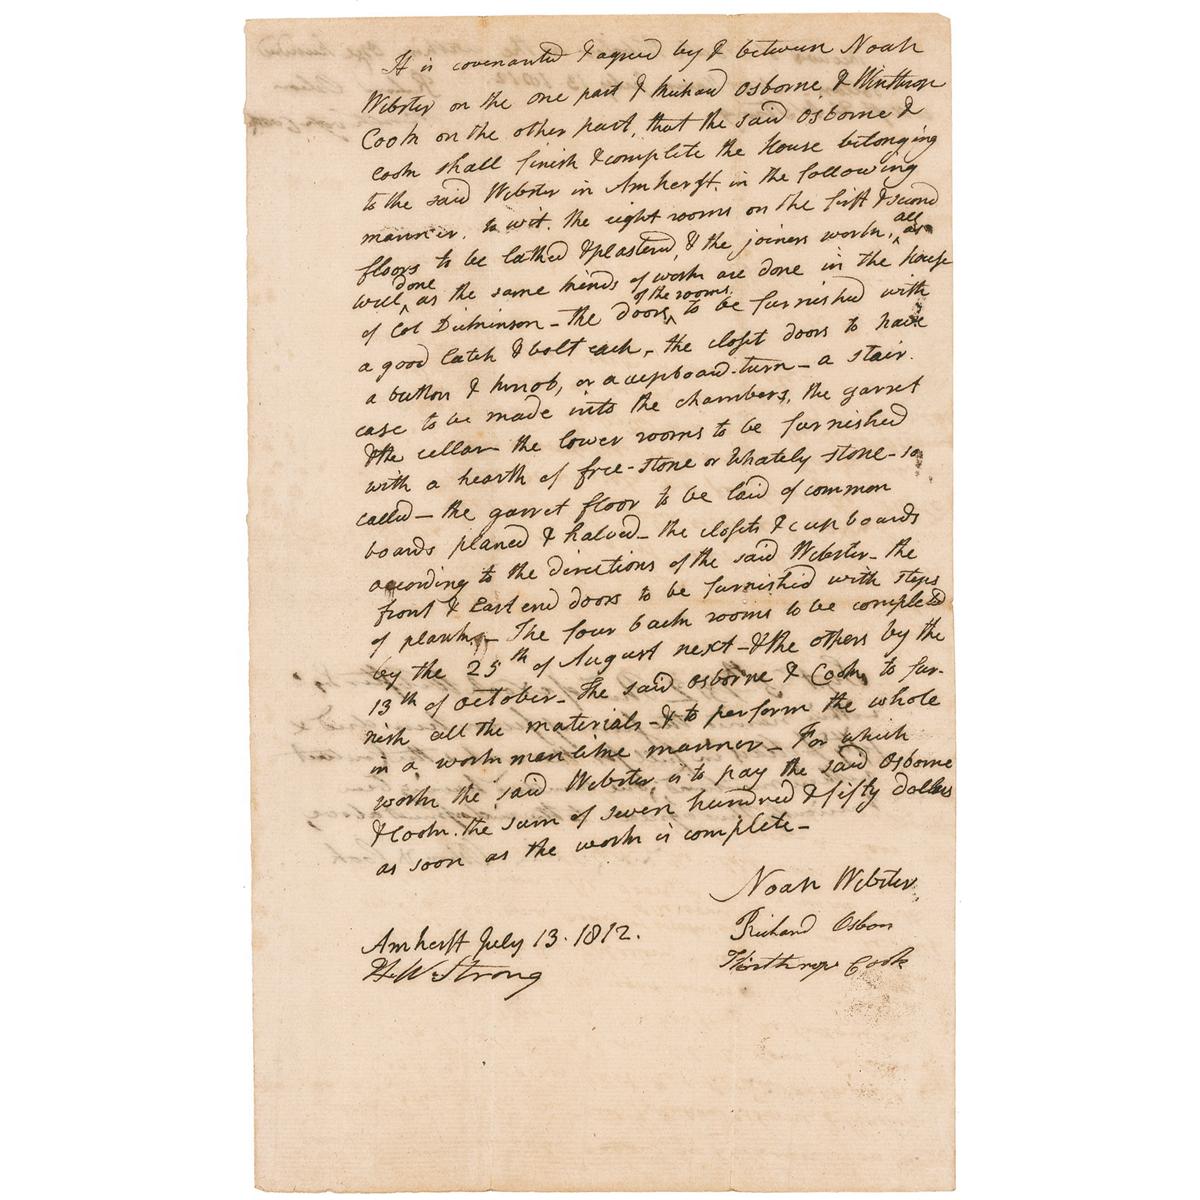 It is covenanted & agreed by & between Noah
Webster on the one part & Richard Osborne & Winthrop
Cook on the other part, that the said Osborne &
Cook shall finish & complete the House belonging
to the said Webster in Amherst, in the following
manner, to wit. the eight rooms on the first & second
floors to be lathed & plastered, & the joiners work, all as
well done as the same kinds of work are done in the house
of Col Dickinson - the doors of the rooms to be furnished with
a good latch & bolt each, the closet doors to have
a button & knob, or a cupboard-turn - a stair
case to be made into the chambers, the garret
& the cellar - the lower rooms to be furnished
with a hearth of free-stone or Whately stone - so
called - the garret floor to be laid of common
boards planed & halved - the closets & cupboards
according to the directions of the said Webster - the
front & East end doors to be furnished with steps
of plank - The four back rooms to be completed
by the 25th of August next - & the others by the
13th of October - The said Osborne & Cook, to fur-
nish all the materials - & to perform the whole
in a workmanlike manner - For which
work the said Webster, is to pay the said Osborne
& Cook. the sum of seven hundred & fifty dollars
as soon as the work is complete -
Noah Webster
Amherst July 13. 1812. Richard Osborn
H W Strong Winthrop Cook